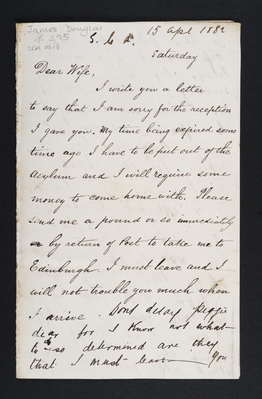 James Douglas
15 Apl 1882
Saturday
Dear Wife,
I write you a letter
to say that I am sorry for the reception
I gave you. My time being expired some
time ago I have to be put out of the
Asylum and I will require some
money to come home with. Please
send me a pound or so immediately
by return of Post to take me to
Edinburgh. I must leave and I
will not trouble you much when
I arrive. Dont delay
dear for I know not what
to do so determined are they
that I must leave You